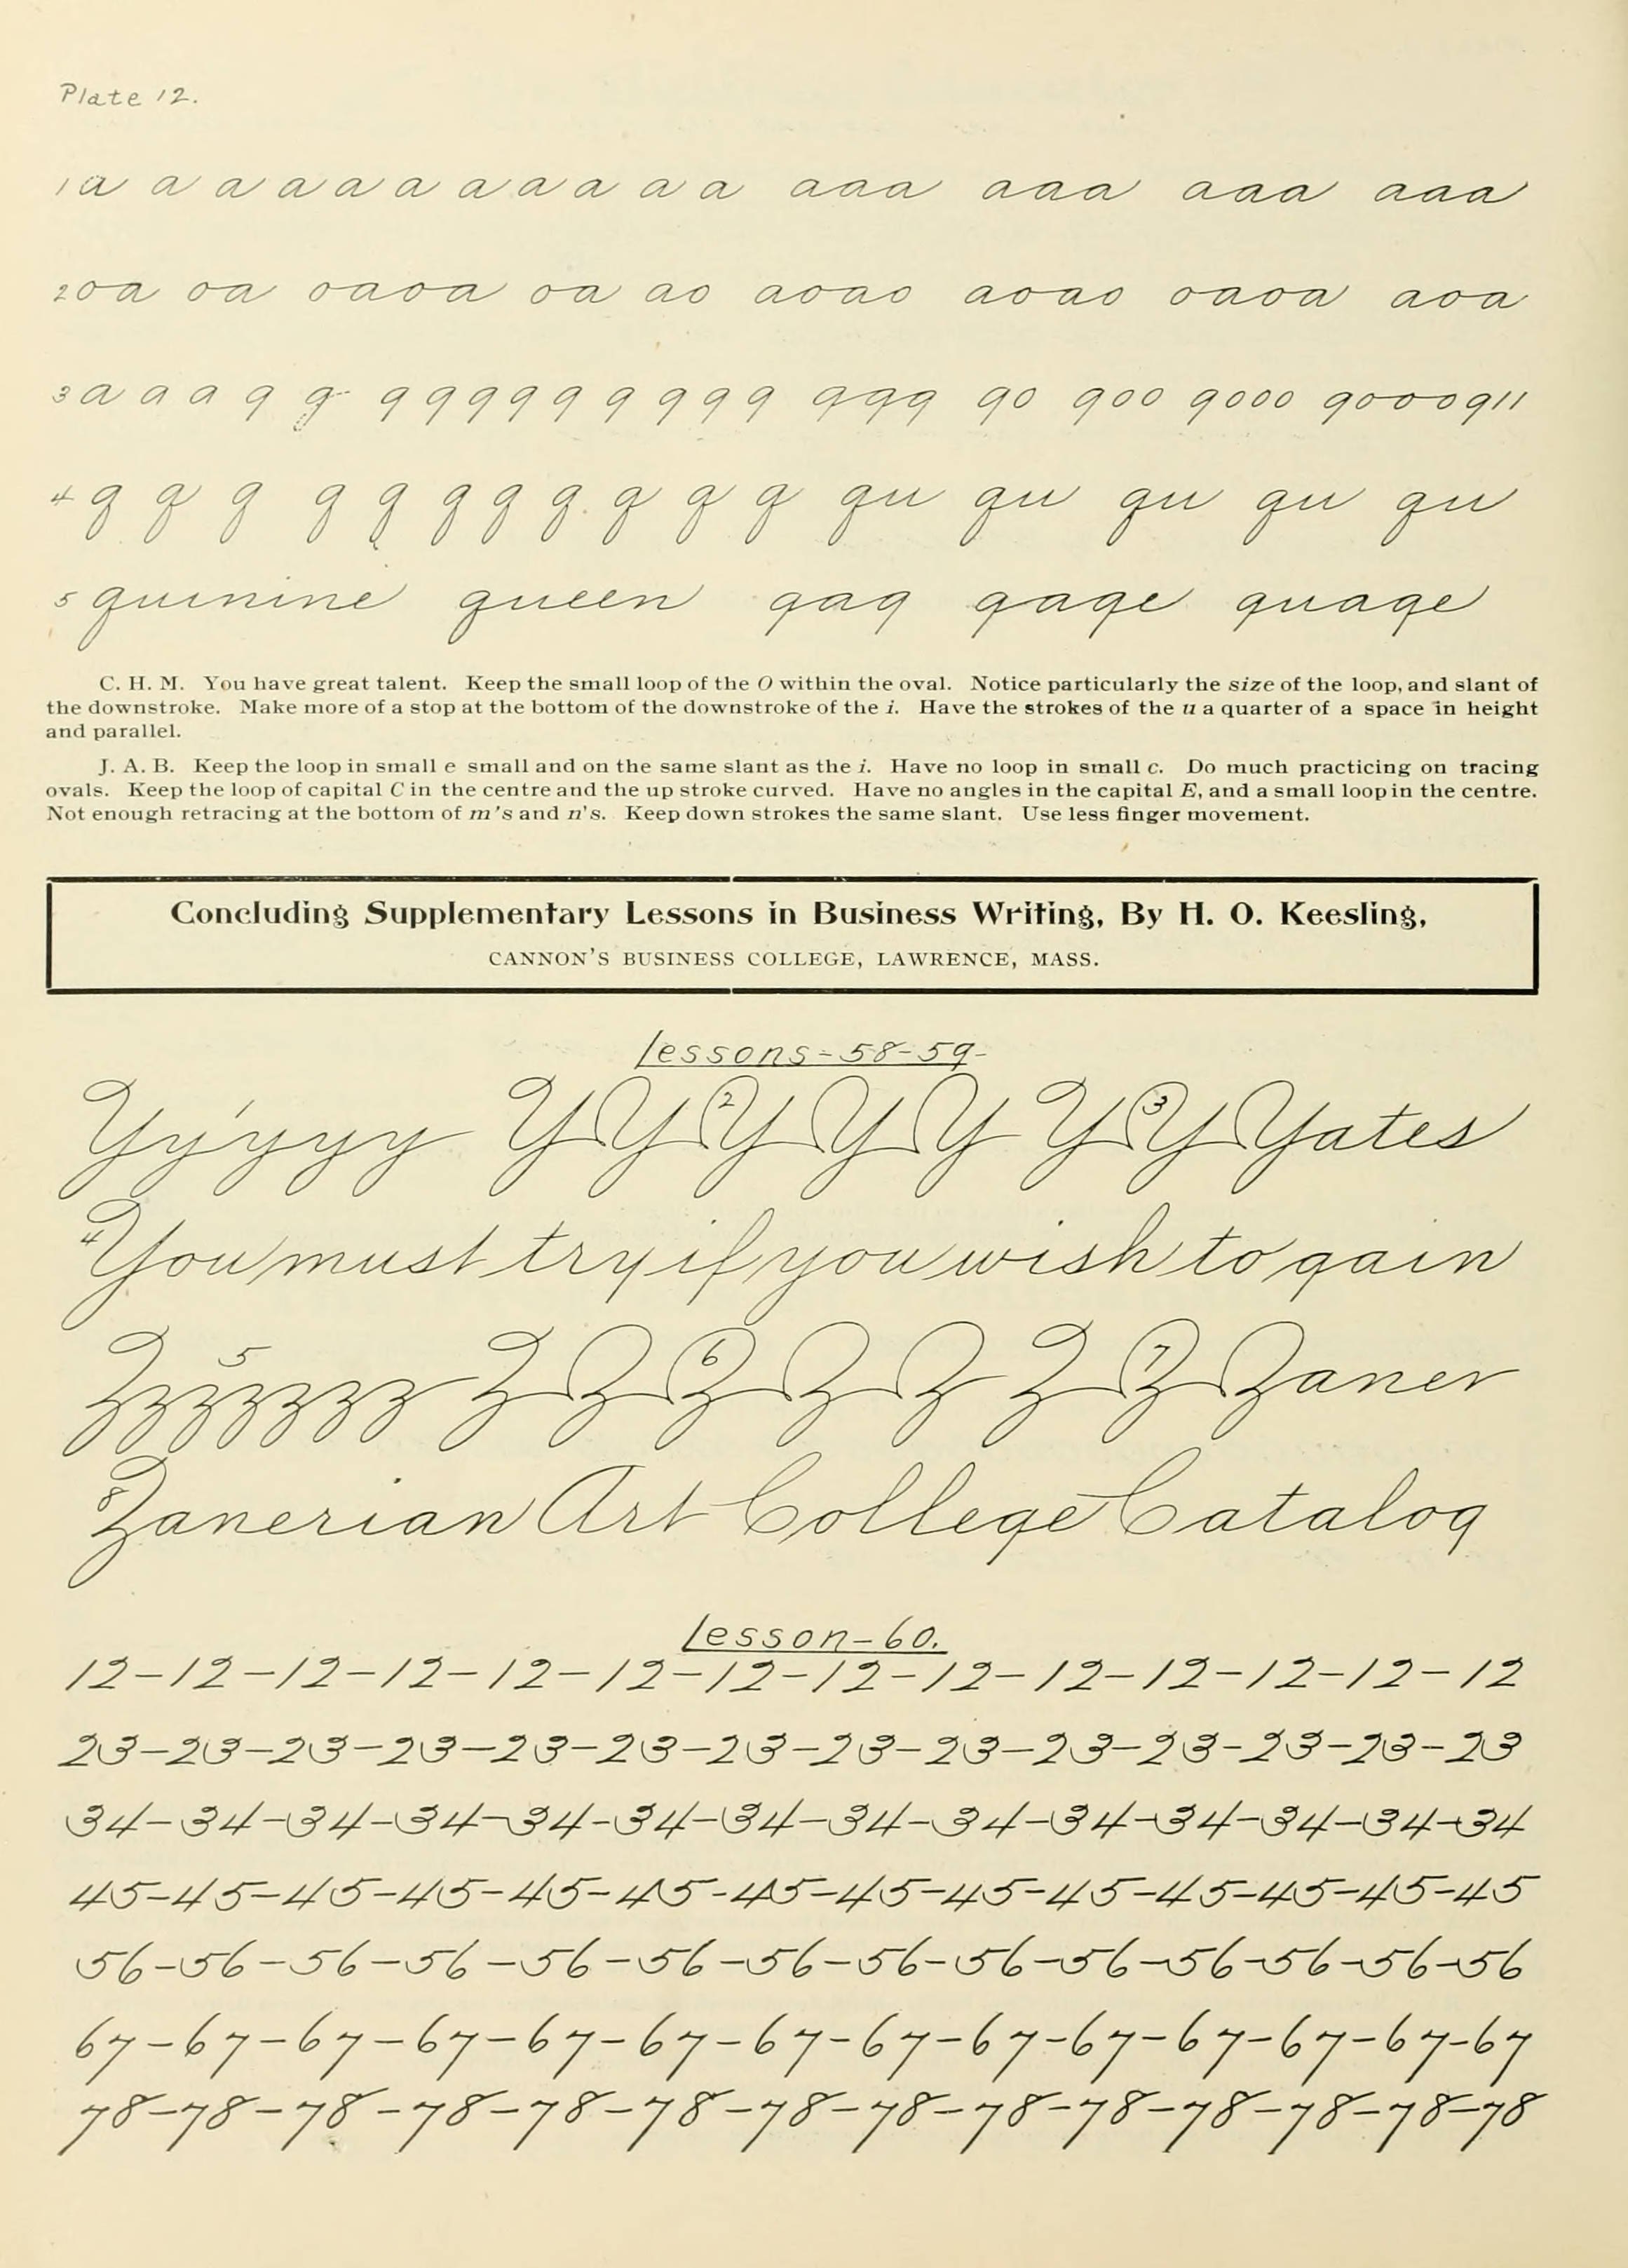 Plate 12.
1 a a a a a a a a a a a aaa aaa aaa aaa
2 oa oa oaoa oa ao aoao aoao oaoa aoa
3 a a a 9 g 9 9 9 9 9 9 9 9 9 9 999 90 900 9000 9000911
4 q q q q q q q q q q q q qu qu qu qu qu
5 quinine queen gag gage quage
C. H. M. You have great talent. Keep the small loop of the O within the oval. Notice particularly the size of the loop, and slant of
the downstroke. Make more of a stop at the bottom of the downstroke of the i. Have the strokes of the u a quarter of a space in height
and parallel.
J. A. B. Keep the loop in small e small and on the same slant as the i. Have no loop in small c. Do much practicing on tracing
ovals. Keep the loop of capital C in the centre and the up stroke curved. Have no angles in the capital E, and a small loop in the centre.
Not enough retracing at the bottom of m's and n's. Keep down strokes the same slant. Use less finger movement.
Concluding Supplementary Lessons in Business Writing, By H. O. Keesling,
CANNON'S BUSINESS COLLEGE, LAWRENCE, MASS.
Lessons-58-59-
Y y y y y Y Y 2 Y Y Y Y 3 Y Yates
4 You must try if you wish to gain
Z 5 z z z z z z Z Z 6 Z Z Z Z 7 Z Zaner
8 Zanerian Art College Catalog
Lesson-60.
12-12-12-12-12-12-12-12-12-12-12-12-12-12
23-23-23-23-23-23-23-23-23-23-23-23-23-23
34-34-34-34-34-34-34-34-34-34-34-34-34-34
45-45-45-45-45-45-45-45-45-45-45-45-45-45
56-56-56-56-56-56-56-56-56-56-56-56-56
67-67-67-67-67-67-67-67-67-67-67-67-67
78-78-78-78-78-78-78-78-78-78-78-78-78